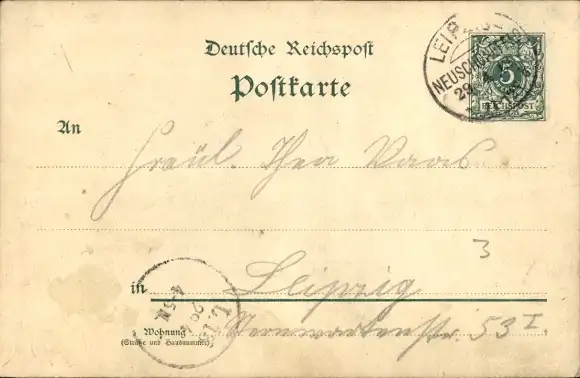 Deutsche Reichspost
Postkarte
LEIPZIG
NEUSCHÖNEFELD
29
5
REICHSPOST
An
Fräul. Thea
3
in Leipzig
4-5N
Wohnung
53 I.
(Straße und Hausnummer)